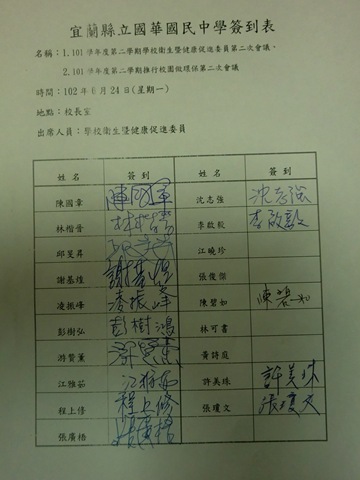 宜蘭縣立國華國民中學簽到表
名稱：1.101學年度第二學期學校衛生暨健康促進委員第二次會議、
2.101學年度第二學期推行校園做環保第二次會議
時間：102年6月24日(星期一)
地點：校長室
出席人員：學校衛生暨健康促進委員
姓名 簽到 姓名 簽到
陳國章 沈志強 沈志強
林楷晉 李啟毅 李啟毅
邱旻昇 江曉玲
謝基煌 謝基煌 張俊傑
凌振峰 凌振峰 陳碧如 陳碧如
彭樹弘 林可書
游贊薰 黃詩庭
江雅茹 許美珠 許美珠
程上修 程上修 張瓊文 張瓊文
張廣梧 張廣梧